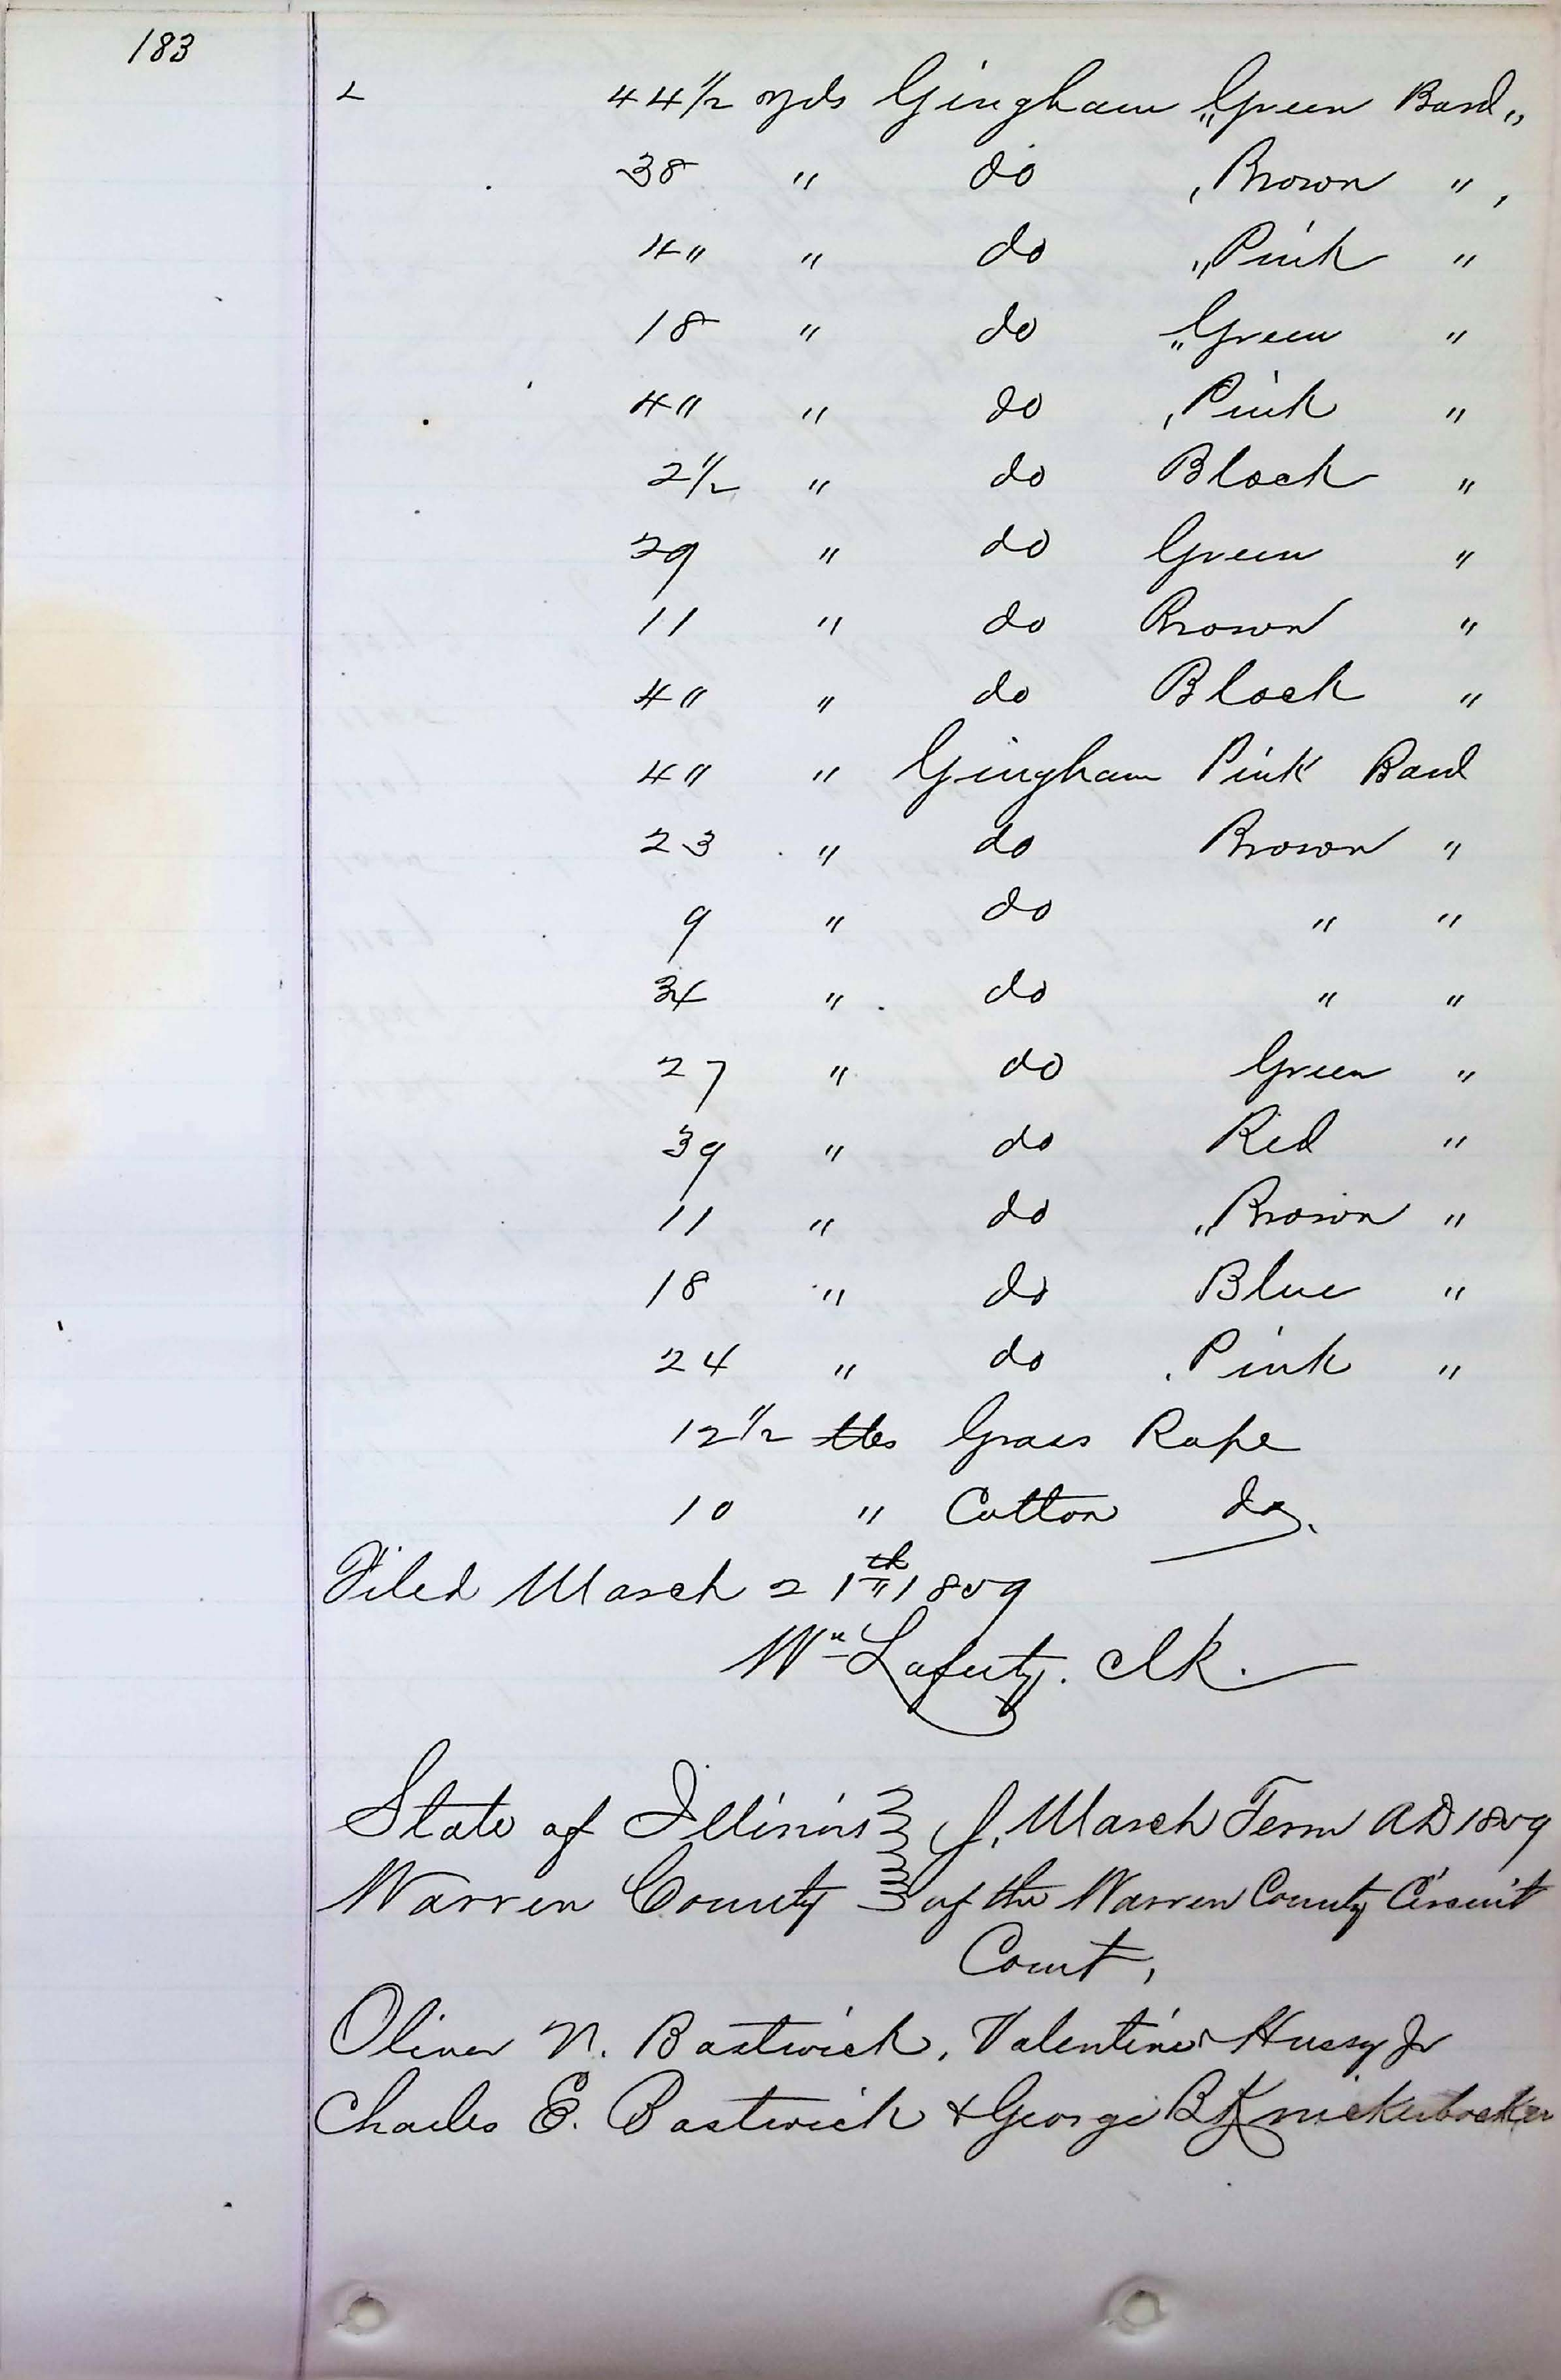 183
44 1/2 yds Gingham "Green Band"
38 " do "Brown " "
4 " " do "Pink "
18 " do "Green "
4 " " do "Pink "
2 1/2 " do Black "
29 " do Green "
11 " do Brown "
4 " " do Black "
4 " " Gingham Pink Band
23 " do Brown "
9 " do " "
34 " do " "
27 " do Green "
39 " do Red "
11 " do "Brown "
18 " do Blue "
24 " do Pink "
12 1/2 lbs Grass Rope
10 " Cotton do.
Filed March 21th 1859
Wm Lafurty. Clk.
State of Illinois } March Term AD 1859
Warren County } of the Warren County Circuit
Court,
Oliver N. Bostwick, Valentine Hussy Jr
Charles E. Bostwick & George B Knickerbocker